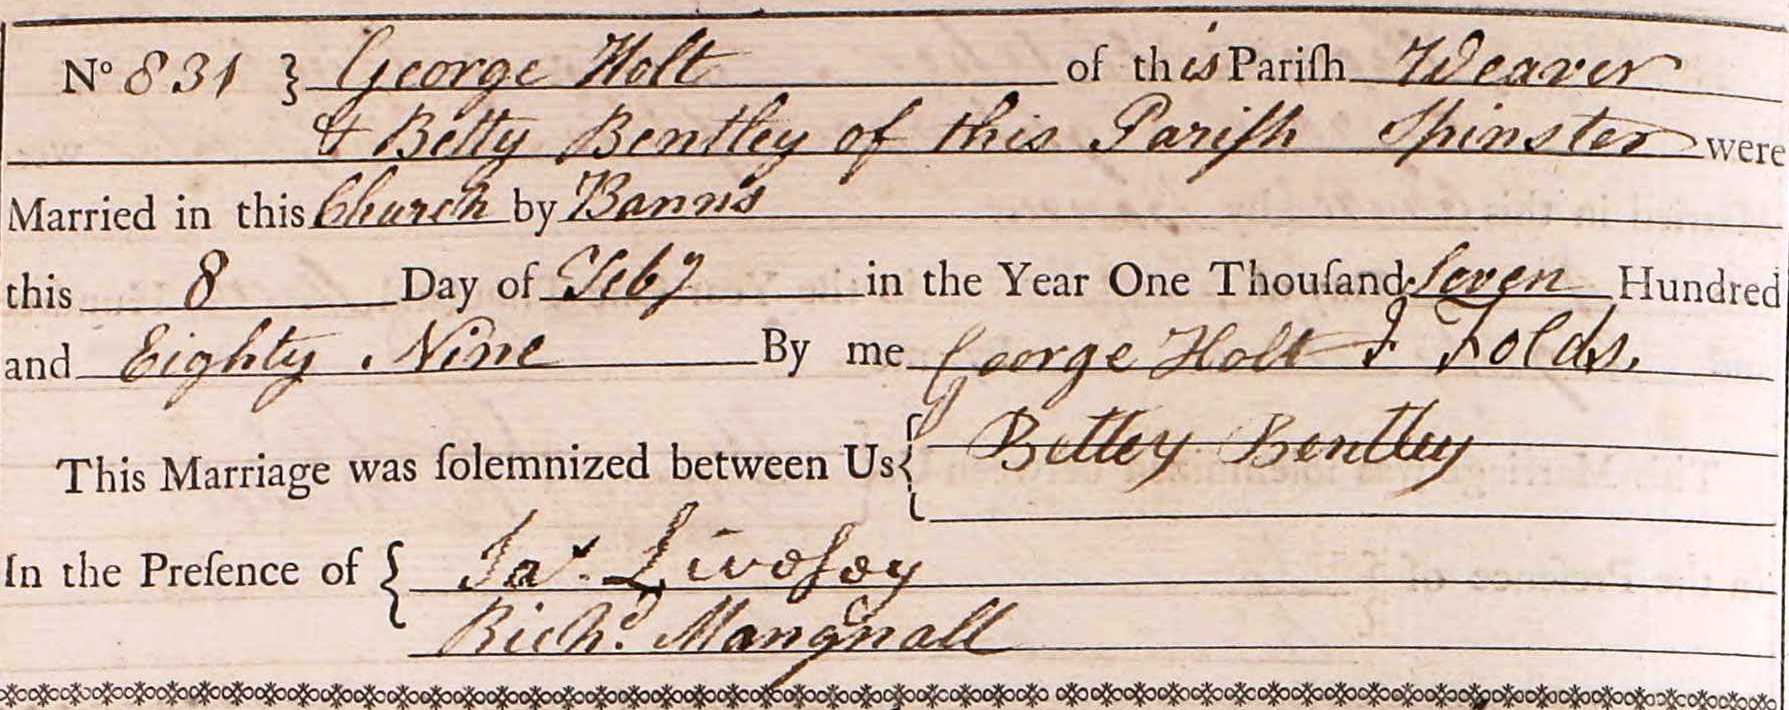 No 831 } George Holt of this Pariſh Weaver
& Betty Bentley of this Pariſh Spinster were
Married in this Church by Banns
this 8 Day of Feby in the Year One Thouſand Seven Hundred
and Eighty Nine By me George Holt J Folds.
This Marriage was ſolemnized between Us { Bettey Bentley
In the Preſence of { Jas. Livdſey
Richd. Mangnall